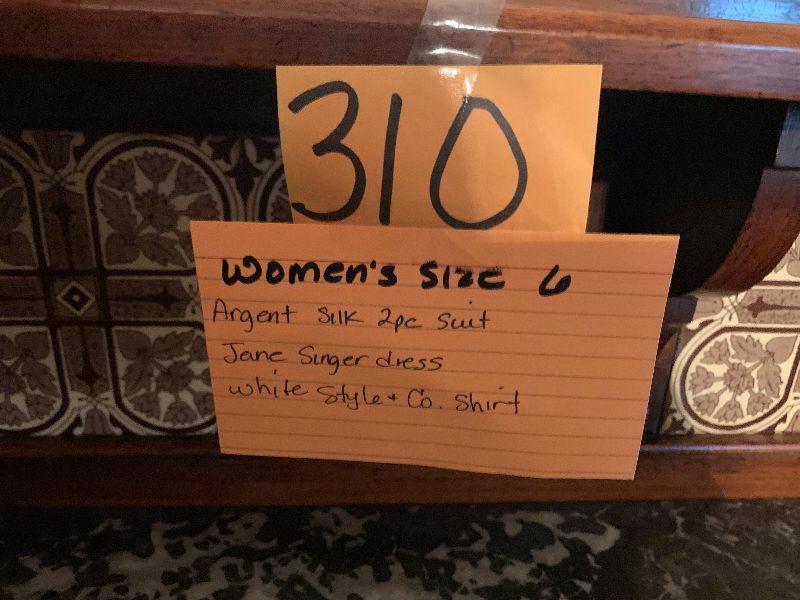 310
Women's Size 6
Argent Silk 2pc Suit
Jane Singer dress
White Style + Co. Shirt